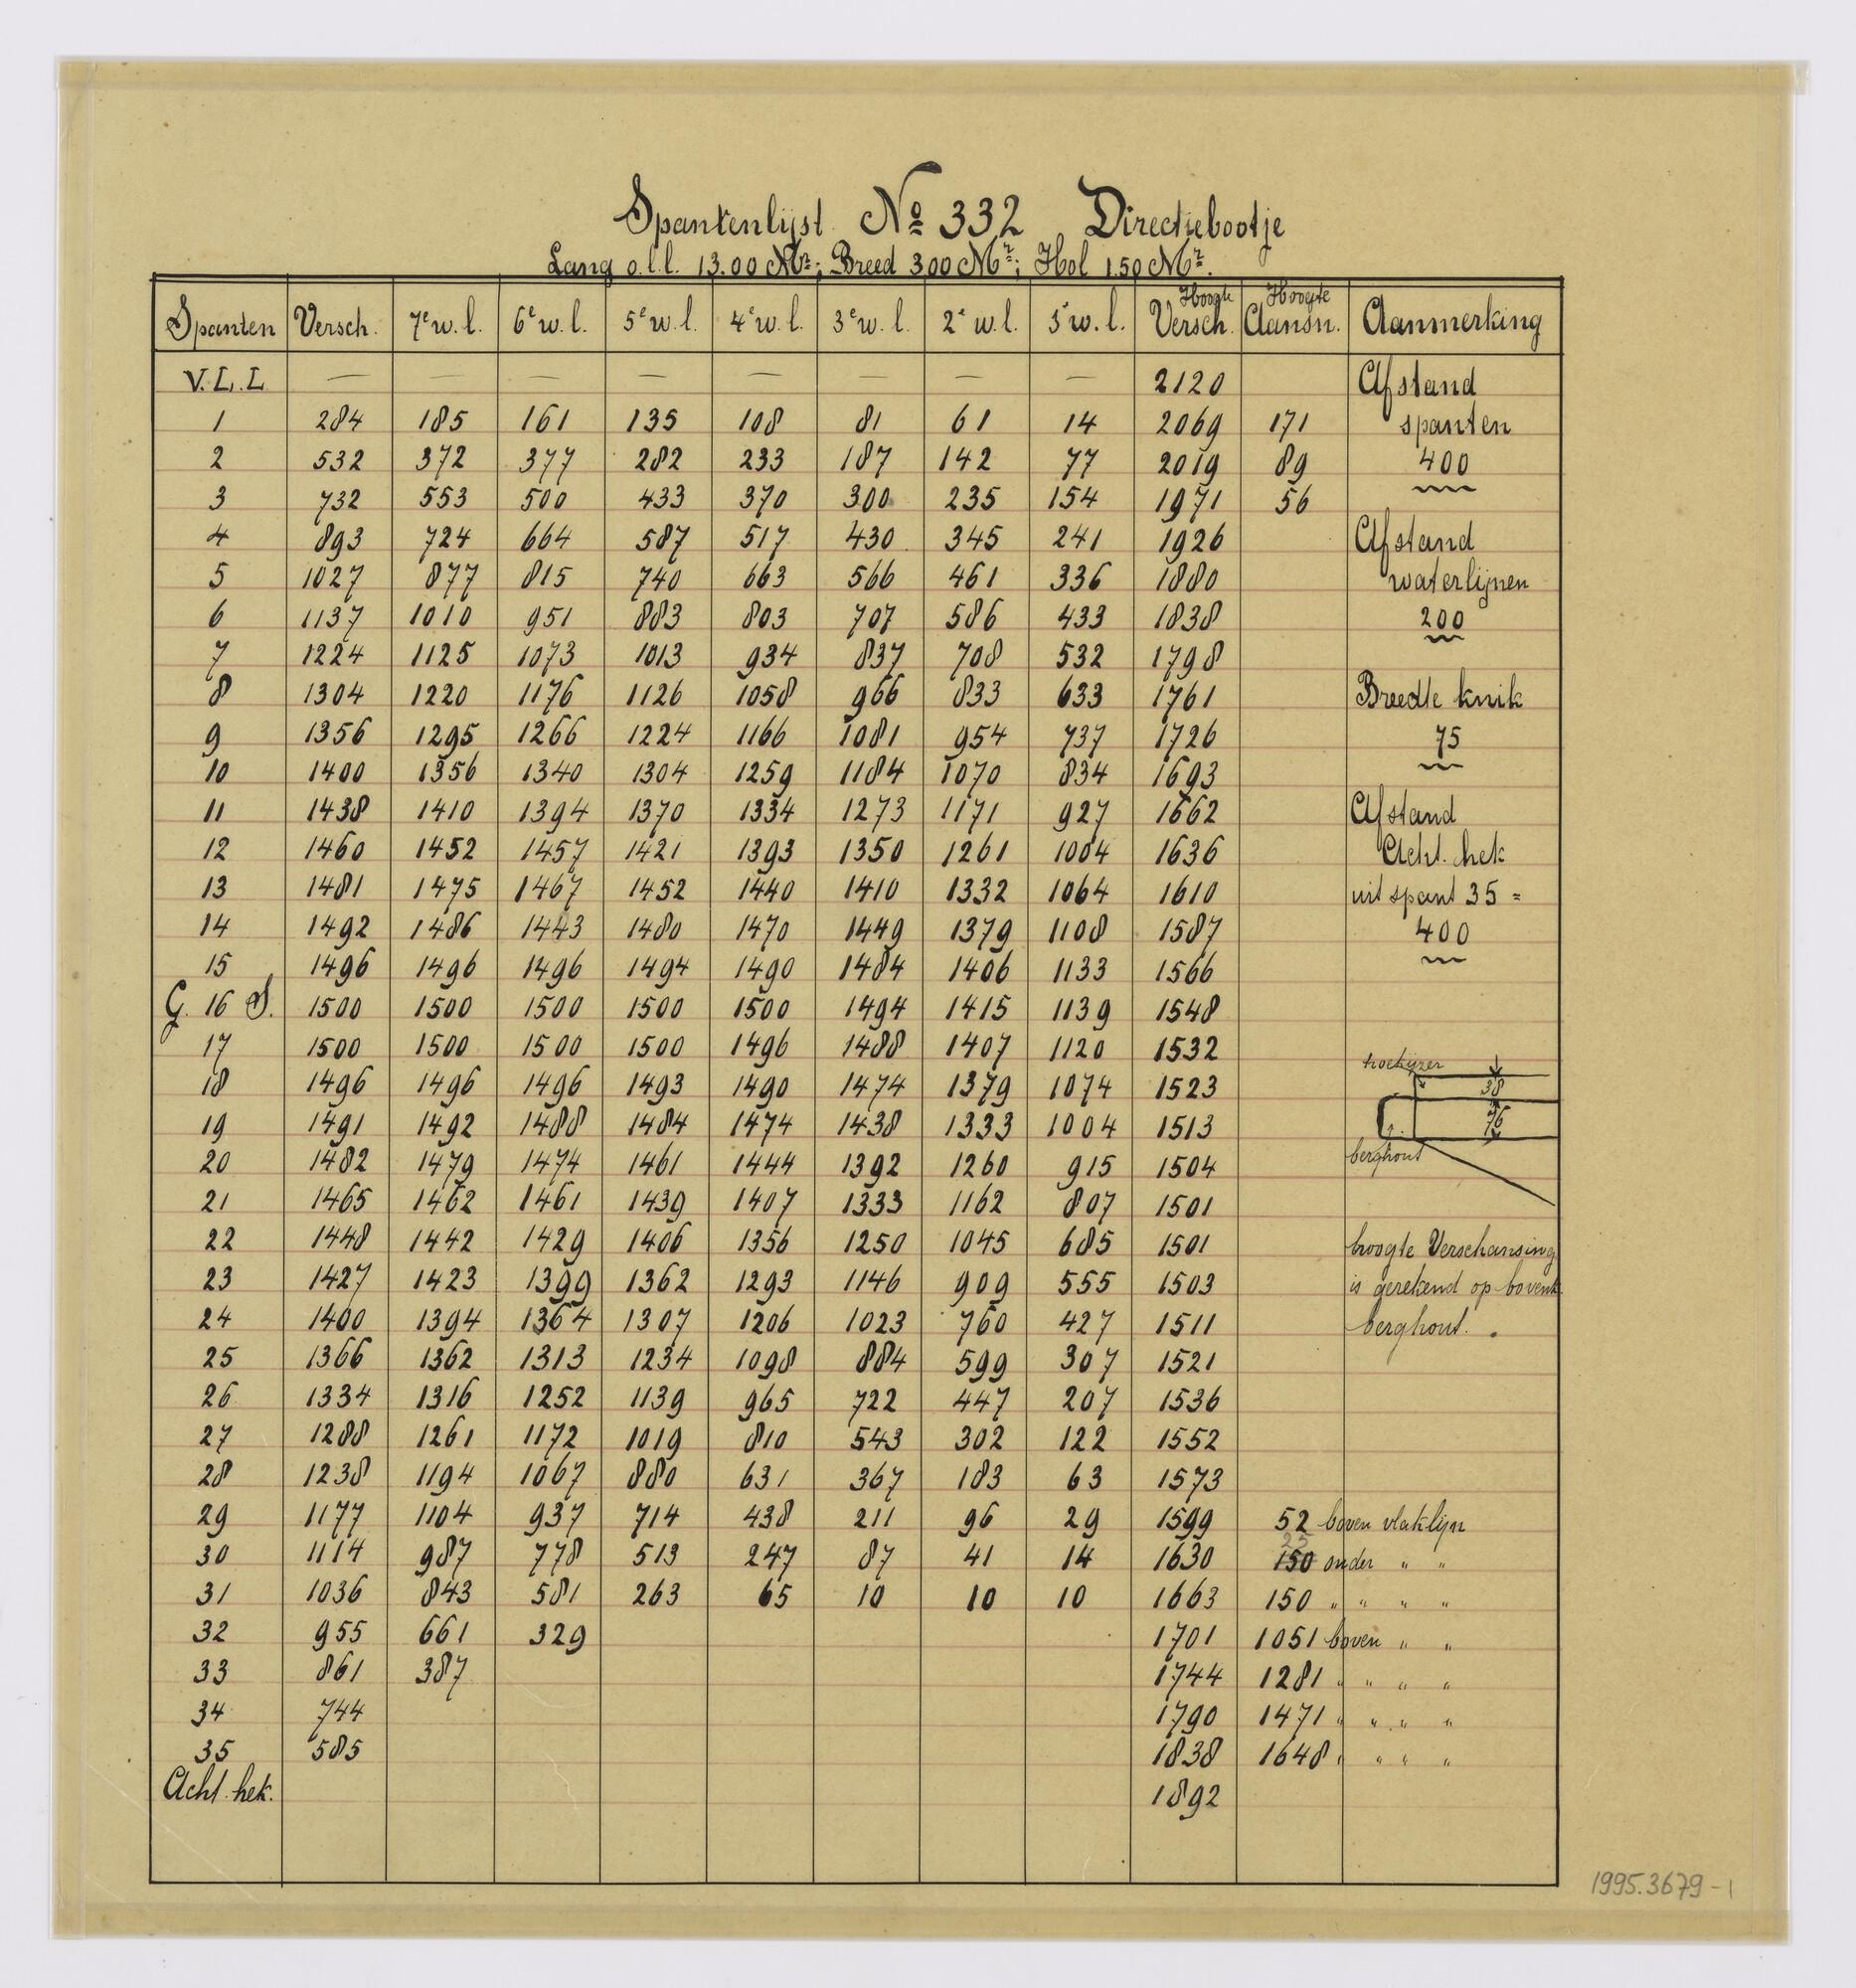 Spantenlijst No 332 Directiebootje
Lang o.l.l. 13.00 Mr; Breed 300 Mr; Hol 1.50 Mr.
Spanten Versch. 7e w.l. 6e w.l. 5e w.l. 4e w.l. 3e w.l. 2e w.l. 1e w.l. Hoogte Versch. Hoogte Aansn. Aanmerking
V.L.L — — — — — — — — 2120 Afstand
1 284 185 161 135 108 81 61 14 2069 171 spanten
2 532 372 377 282 233 187 142 77 2019 89 400
3 732 553 500 433 370 300 235 154 1971 56
4 893 724 664 587 517 430 345 241 1926 Afstand
5 1027 877 815 740 663 566 461 336 1880 waterlijnen
6 1137 1010 951 883 803 707 586 433 1838 200
7 1224 1125 1073 1013 934 837 708 532 1798
8 1304 1220 1176 1126 1058 966 833 633 1761 Breedte knik
9 1356 1295 1266 1224 1166 1081 954 737 1726 75
10 1400 1356 1340 1304 1259 1184 1070 834 1693
11 1438 1410 1394 1370 1334 1273 1171 927 1662 Afstand
12 1460 1452 1457 1421 1393 1350 1261 1004 1636 Acht. hek
13 1481 1475 1467 1452 1440 1410 1332 1064 1610 uit spant 35 =
14 1492 1486 1443 1480 1470 1449 1379 1108 1587 400
15 1496 1496 1496 1494 1490 1484 1406 1133 1566
G. 16 S. 1500 1500 1500 1500 1500 1494 1415 1139 1548
17 1500 1500 1500 1500 1496 1488 1407 1120 1532
hoekijzer
18 1496 1496 1496 1493 1490 1474 1379 1074 1523 38
19 1491 1492 1488 1484 1474 1438 1333 1004 1513 76
20 1482 1479 1474 1461 1444 1392 1260 915 1504 berghout
21 1465 1462 1461 1439 1407 1333 1162 807 1501
22 1448 1442 1429 1406 1356 1250 1045 685 1501 hoogte Verschansing
23 1427 1423 1399 1362 1293 1146 909 555 1503 is gerekend op bovenk
24 1400 1394 1364 1307 1206 1023 760 427 1511 berghout.
25 1366 1362 1313 1234 1098 884 599 307 1521
26 1334 1316 1252 1139 965 722 447 207 1536
27 1288 1261 1172 1019 810 543 302 122 1552
28 1238 1194 1067 880 631 367 183 63 1573
29 1177 1104 937 714 438 211 96 29 1599 52 boven vlaklijn
30 1114 987 778 513 247 87 41 14 1630 150 onder " "
31 1036 843 581 263 65 10 10 10 1663 150 " " " "
32 955 661 329 1701 1051 boven " "
33 861 387 1744 1281 " " " "
34 744 1790 1471 " " " "
35 585 1838 1648 " " " "
Acht. hek. 1892
1995.3679-1